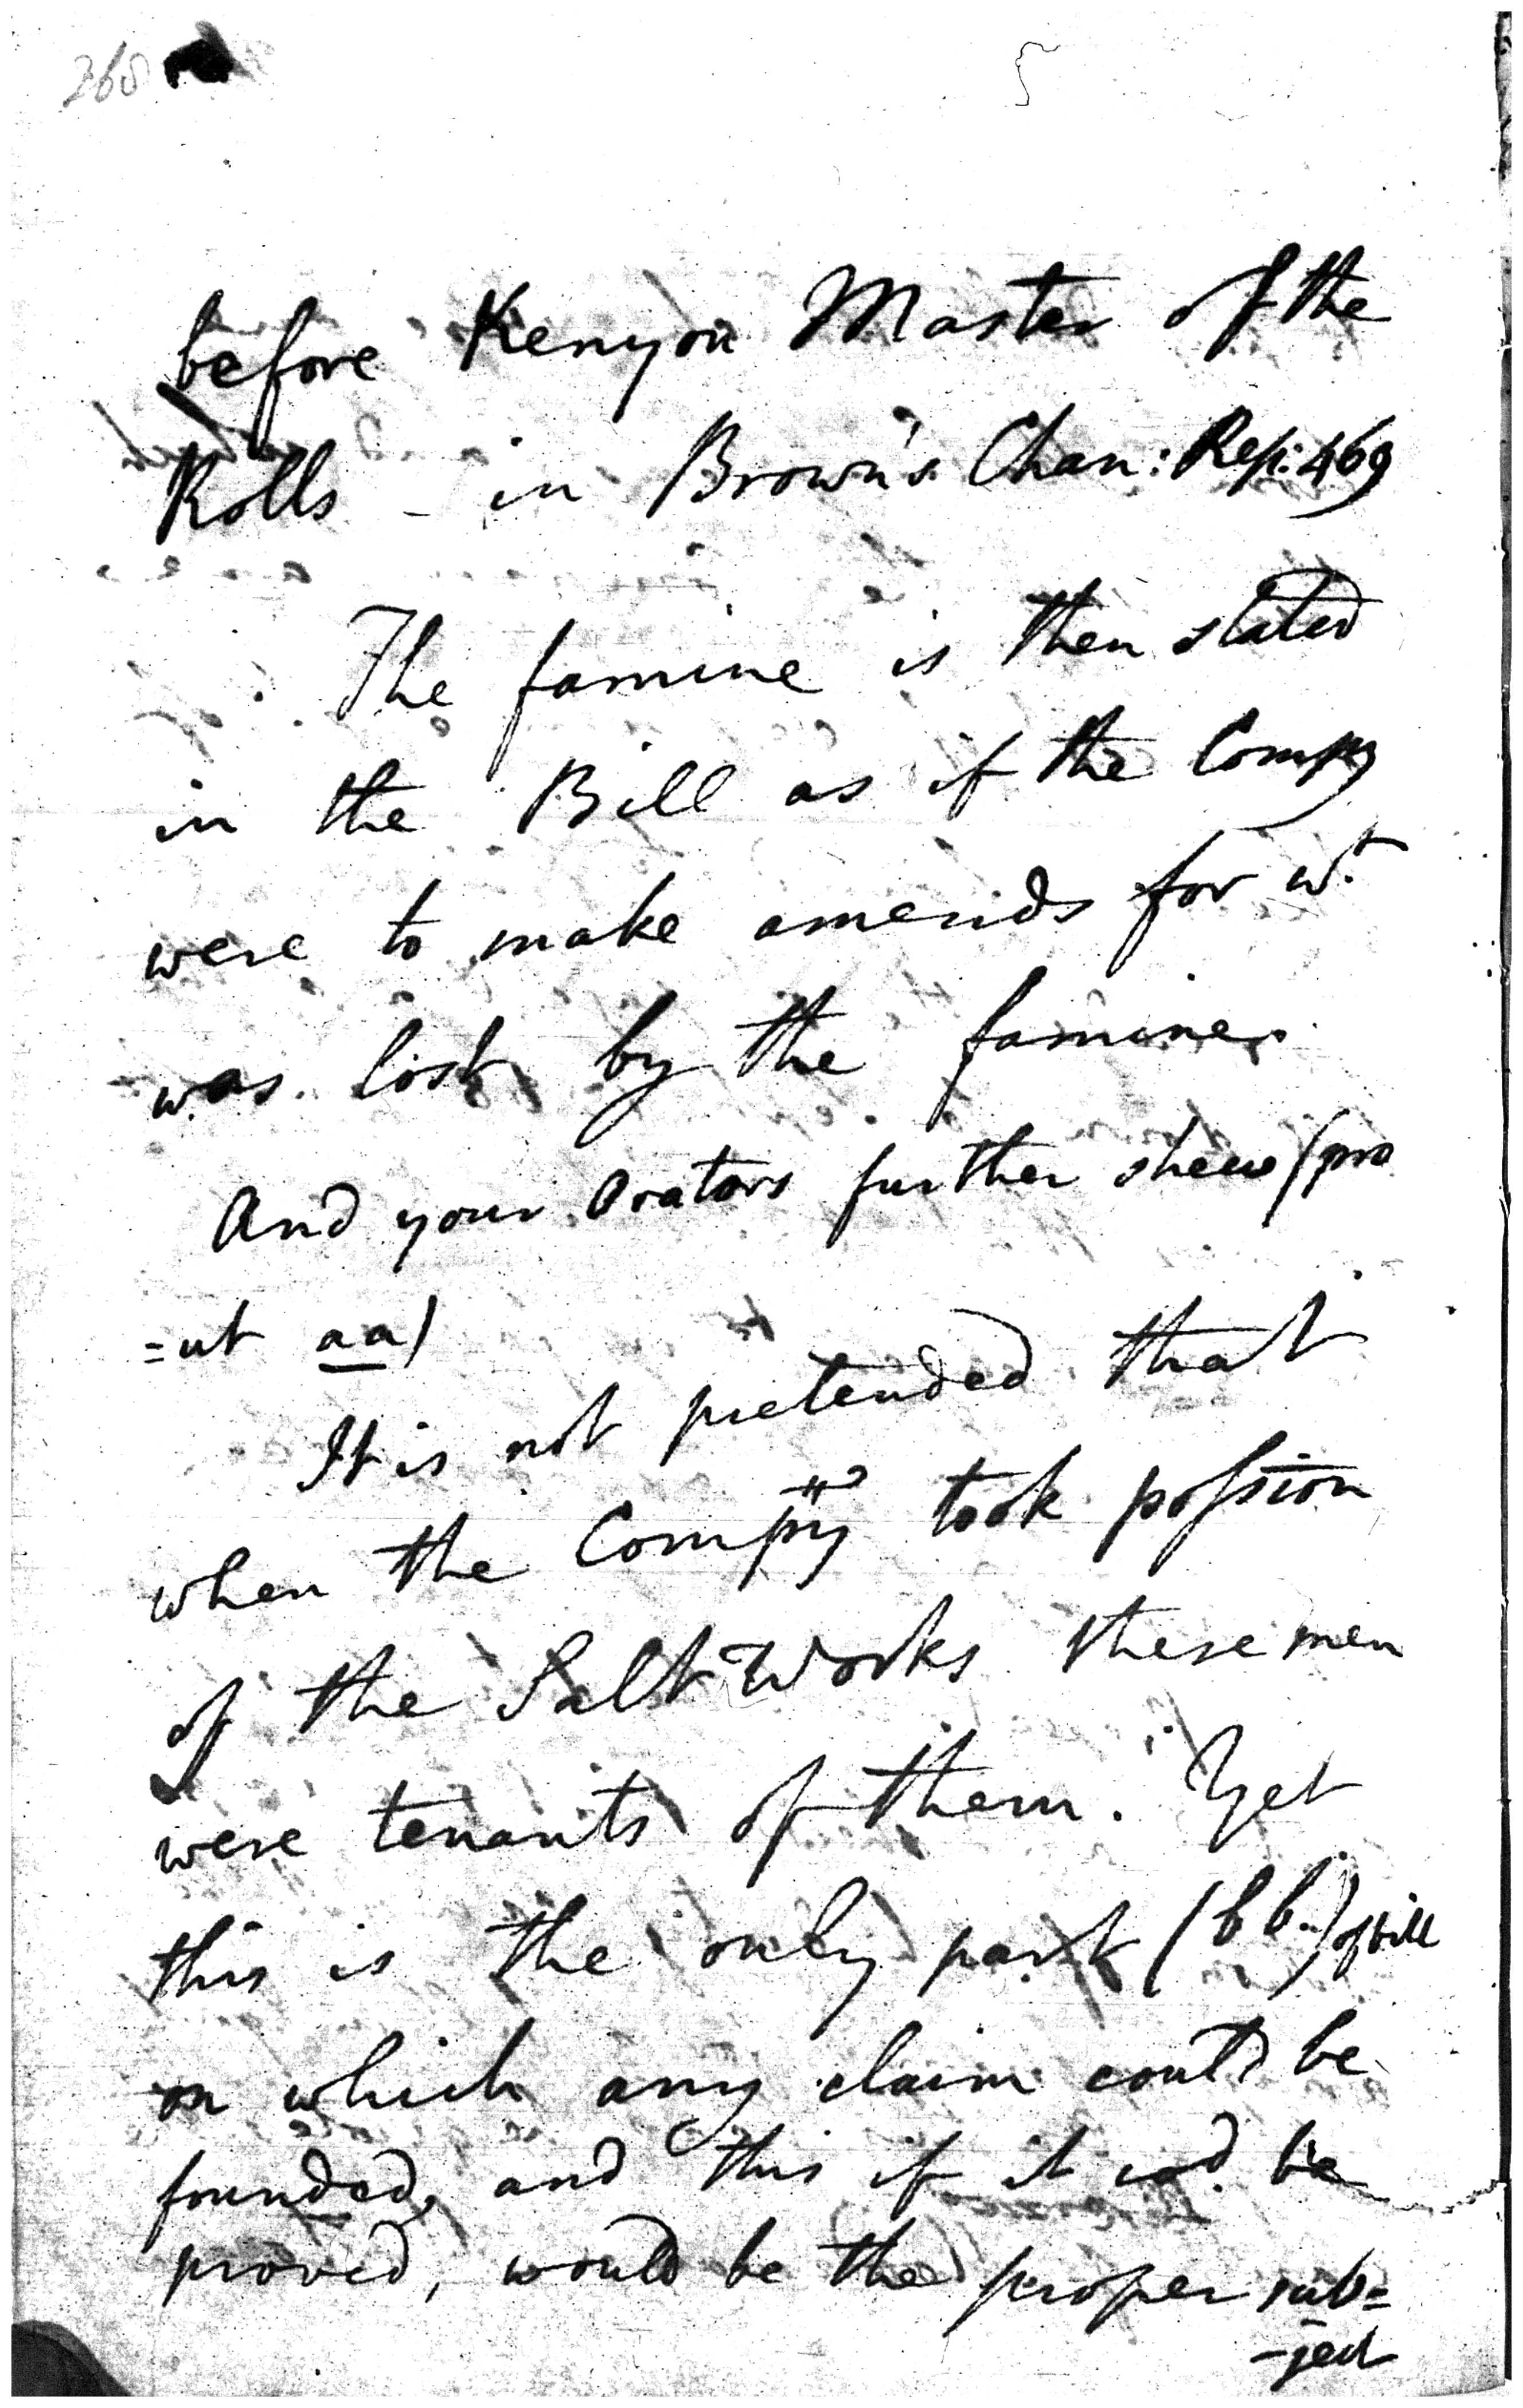 268
before Kenyon Master of the
Rolls - in Brown's Chan: Rep: 469
The famine is then stated
in the Bill as if the Compy
were to make amends for wt.
was lost by the famine.
And your Orators further shew (pro
=ut aa)
It is not pretended that
when the Compy took possion
of the Salt Works these men
were tenants of them. Yet
this is the only part (bb.) of bill
on which any claim could be
founded, and this if it cod. be
proved, would be the proper sub=
-ject